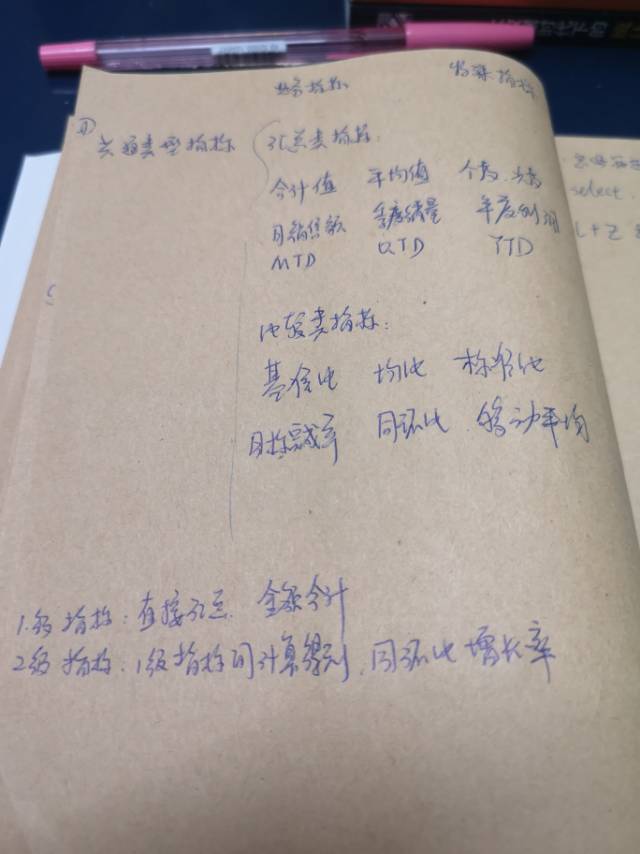 业务指标
特殊指标
① 共通类型指标
汇总类指标:
合计值 平均值 个数、次数
月销售额 季度销量 年度利润
MTD QTD YTD
比较类指标:
基准比 均比 标准化
目标完成率 同环比 移动平均
select
1级指标:直接汇总 金额合计
2级指标:1级指标间计算得到,同环比 增长率